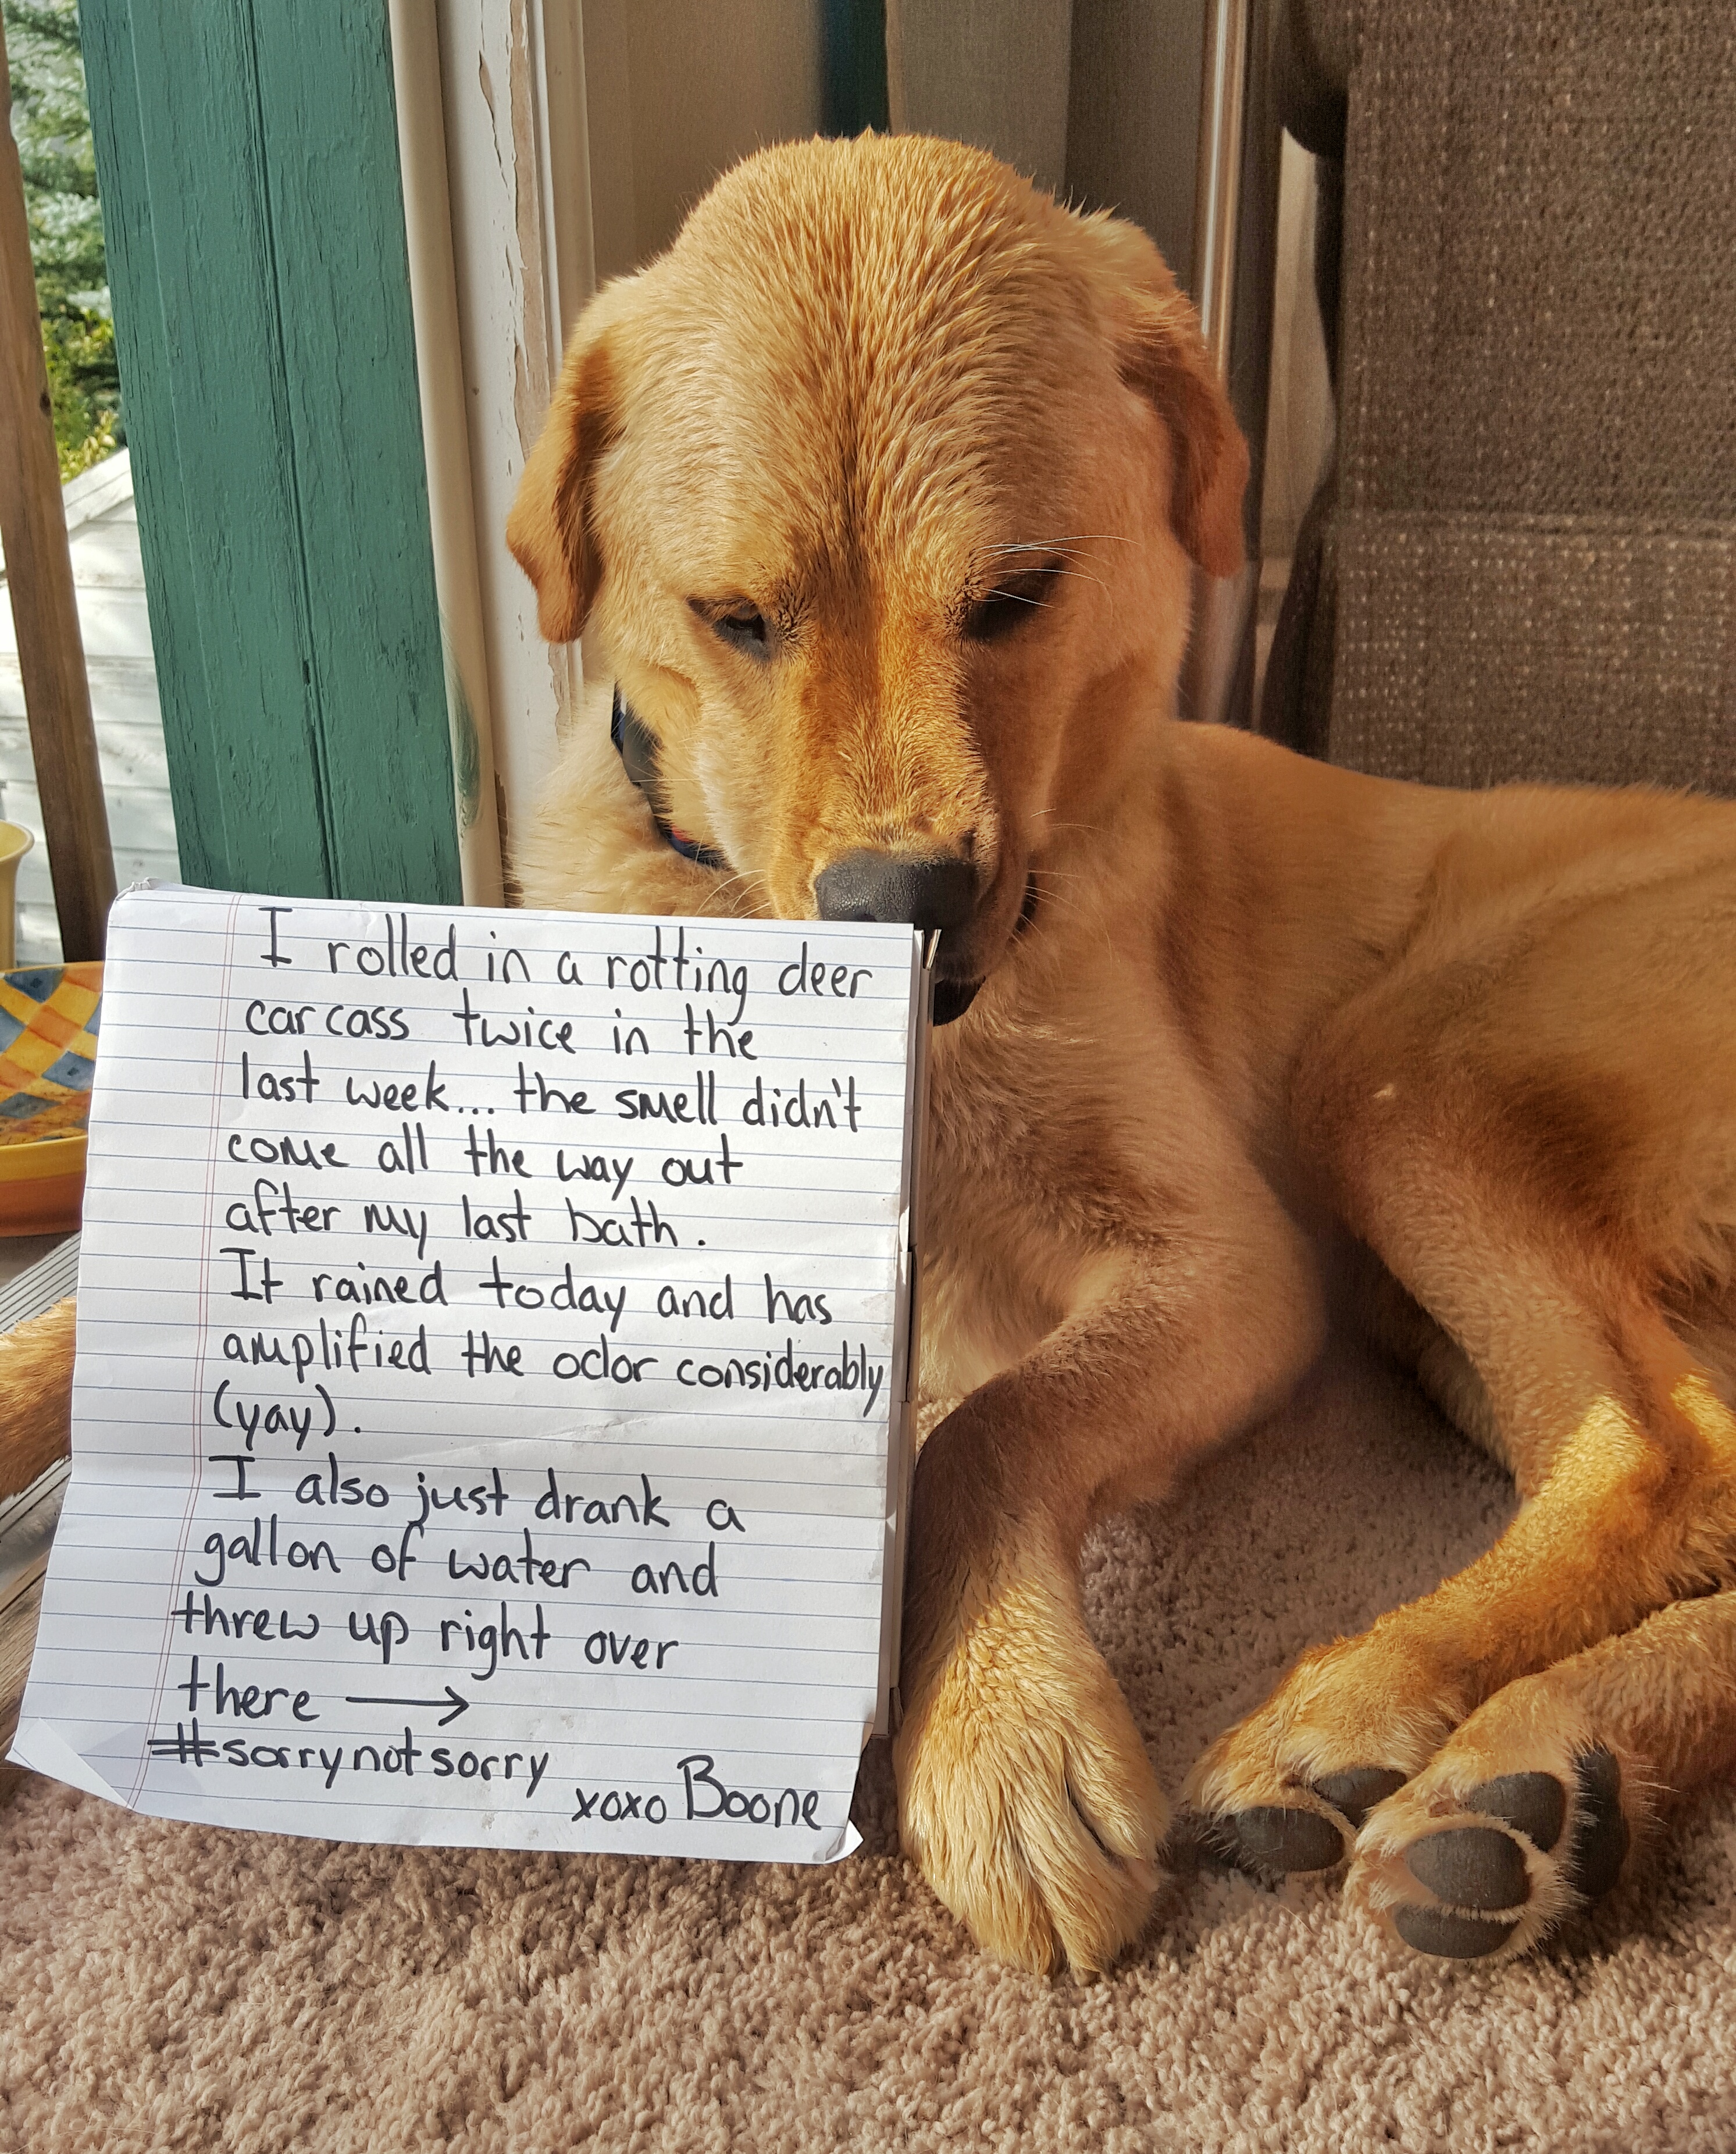 I rolled in a rotting deer
carcass twice in the
last week... the smell didn't
come all the way out
after my last bath.
It rained today and has
amplified the odor considerably
(yay).
I also just drank a
gallon of water and
threw up right over
there →
#sorrynotsorry
xoxo Boone